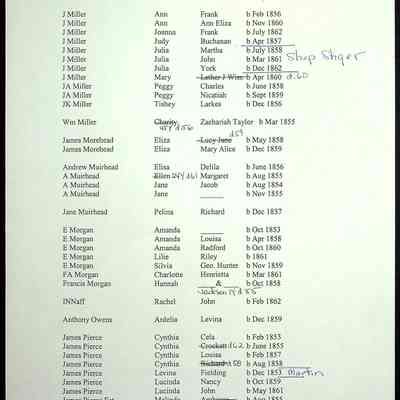 J Miller Ann Frank b Feb 1856
J Miller Ann Ann Eliza b Nov 1860
J Miller Joanna Frank b July 1862
J Miller Judy Buchanan b Apr 1857
J Miller Julia Martha b July 1858
J Miller Julia John b Mar 1861
J Miller Julia York b Dec 1862
J Miller Mary Luther J Wim b Apr 1860 d.60
JA Miller Peggy Charles b June 1858
JA Miller Peggy Nicatiah b Sept 1859
JK Miller Tishey Larkes b Dec 1856
Wm Miller Charity Zachariah Taylor b Mar 1855
d59
James Morehead Eliza Lucy June b May 1858
James Morehead Eliza Mary Alice b Dec 1859
Andrew Muirhead Elisa Delila b June 1856
A Muirhead Ellen 24Y d61 Margaret b Aug 1855
A Muirhead Jane Jacob b Aug 1854
A Muirhead Jane ______ b Nov 1855
Jane Muirhead Pelina Richard b Dec 1857
E Morgan Amanda ______ b Oct 1853
E Morgan Amanda Louisa b Apr 1858
E Morgan Amanda Radford b Oct 1860
E Morgan Lilie Riley b 1861
E Morgan Silvia Geo. Hunter b Nov 1859
FA Morgan Charlotte Henrietta b Mar 1861
Francis Morgan Hannah ___&___ b Oct 1858
Jackson d 55
INNaff Rachel John b Feb 1862
Anthony Owens Ardelia Levina b Dec 1859
James Pierce Cynthia Cela b Feb 1853
James Pierce Cynthia Crockett d62 b June 1855
James Pierce Cynthia Louisa b Feb 1857
James Pierce Cynthia Richard d58 b Aug 1858
James Pierce Levina Fielding b Dec 1853 Martin
James Pierce Lucinda Nancy b Oct 1859
James Pierce Lucinda John b May 1861
James Pierce Malinda b Aug 1855